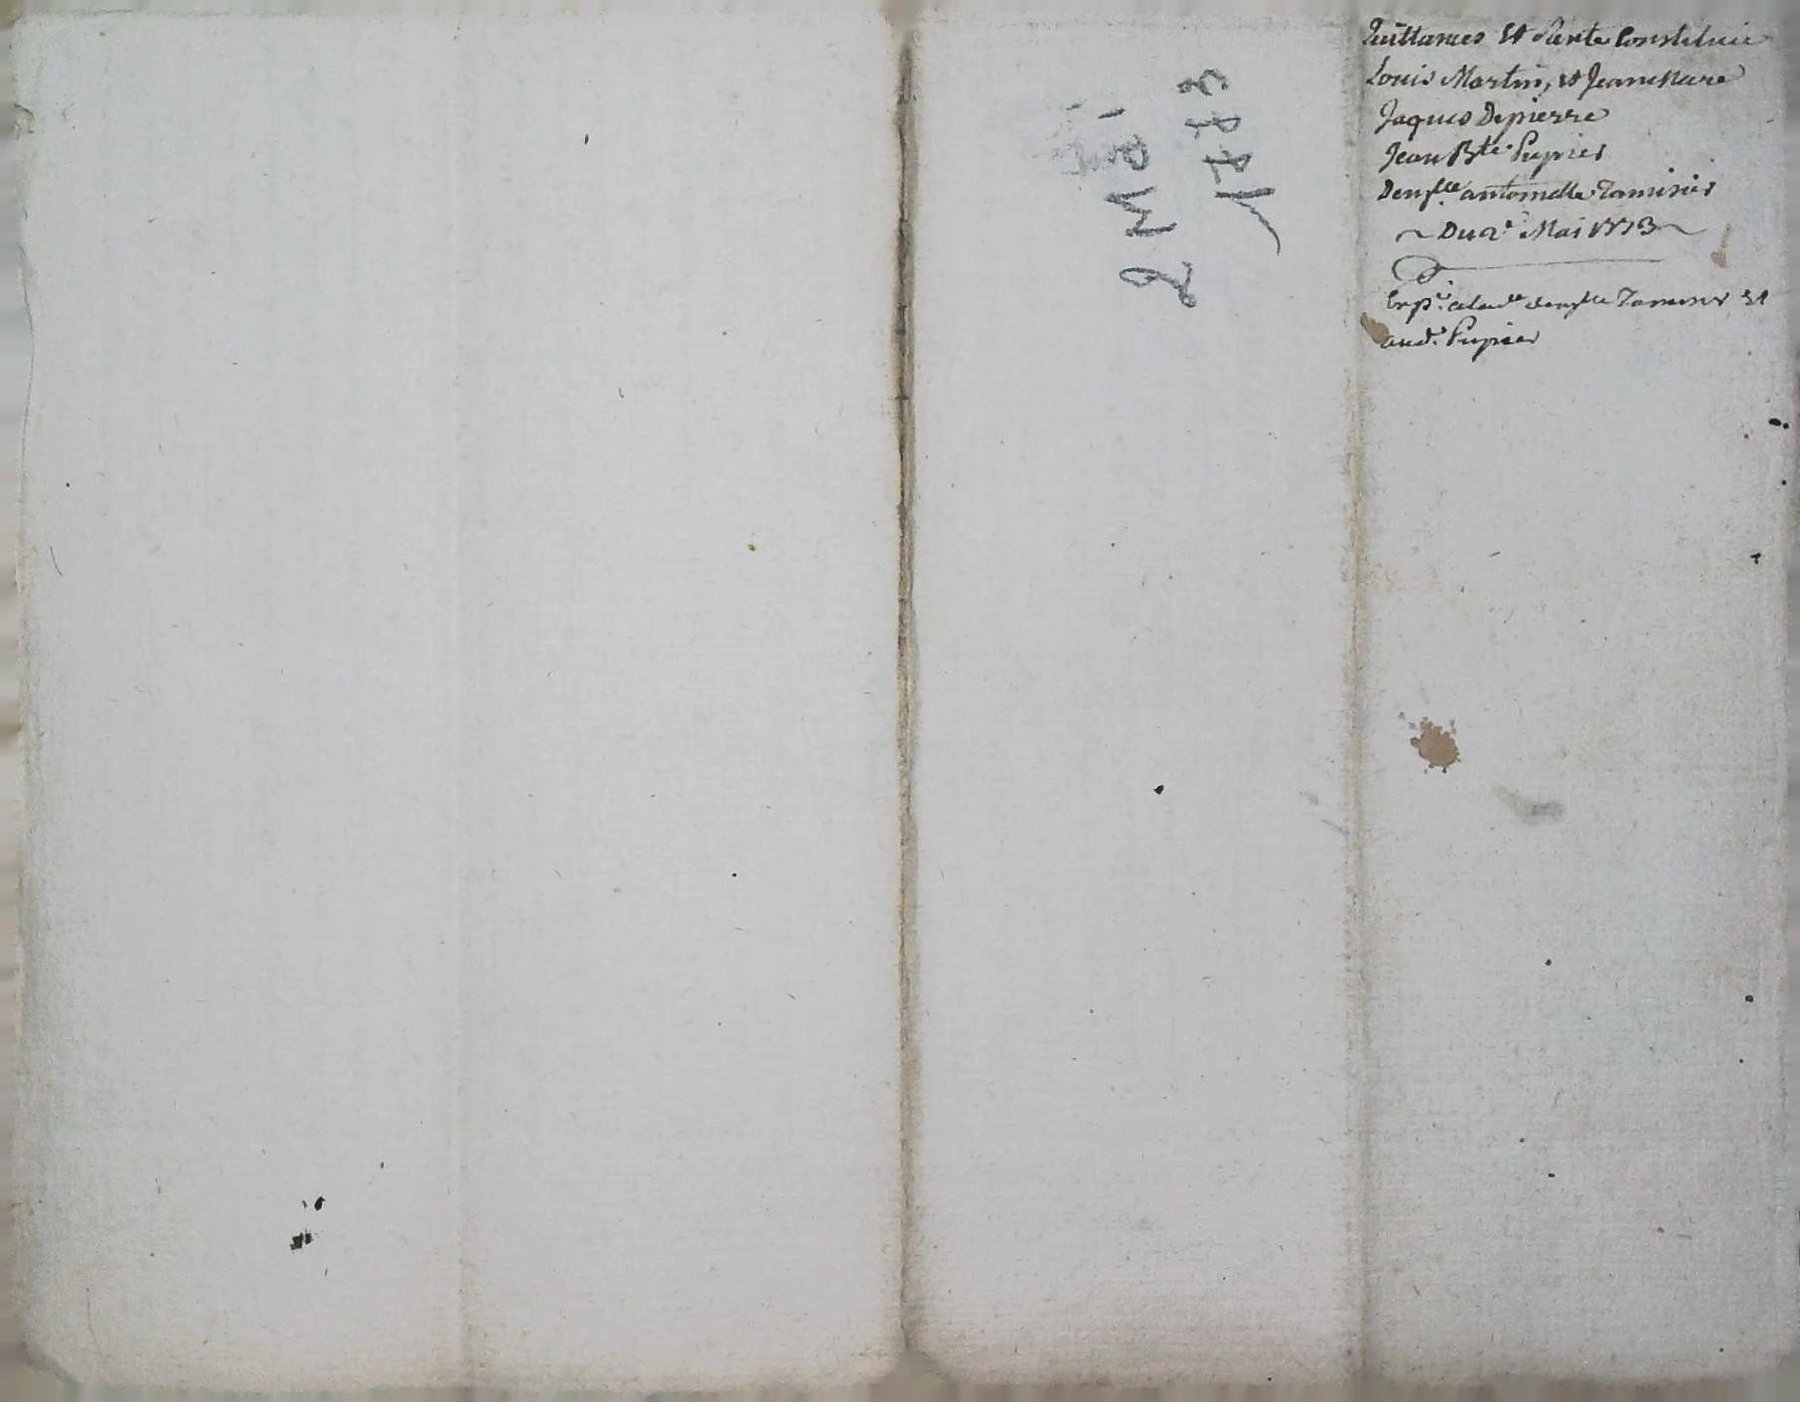 Quittances Et Rente Constituée
Louis Martin, et Jean
Jaques Depierre
Jean Bte Pupier
Demlle antoinette Tamisier
Du 2e Mai 1773
Expé. a lade demlle Tamisier Et
aud. Pupier
2 Mai
1773